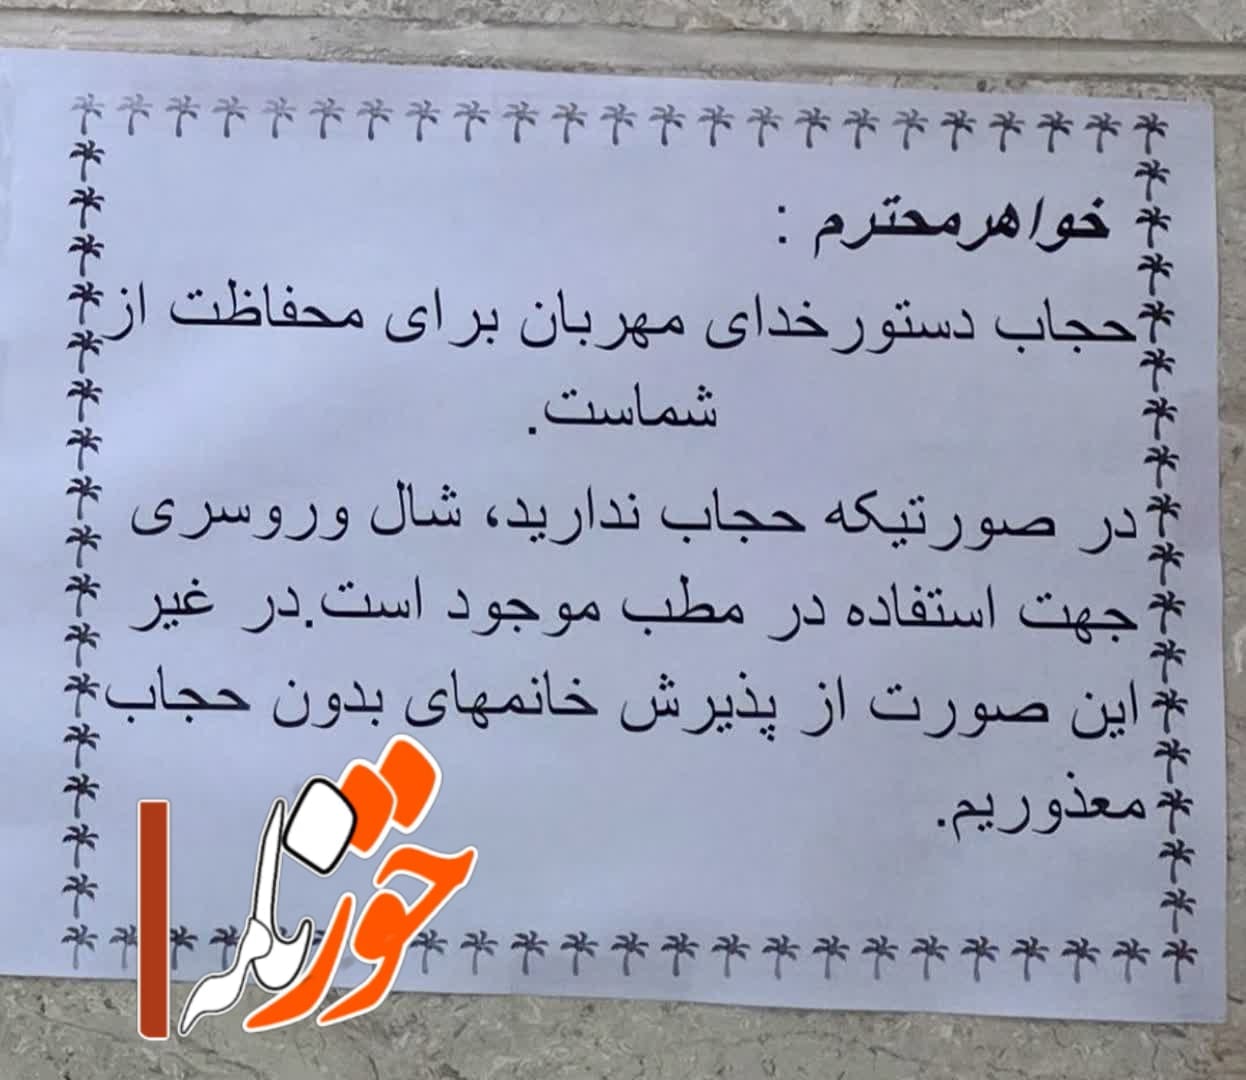 خواهرمحترم :
حجاب دستورخدای مهربان برای محفاظت از
شماست.
در صورتیکه حجاب ندارید، شال وروسری
جهت استفاده در مطب موجود است.در غیر
این صورت از پذیرش خانمهای بدون حجاب
معذوریم.